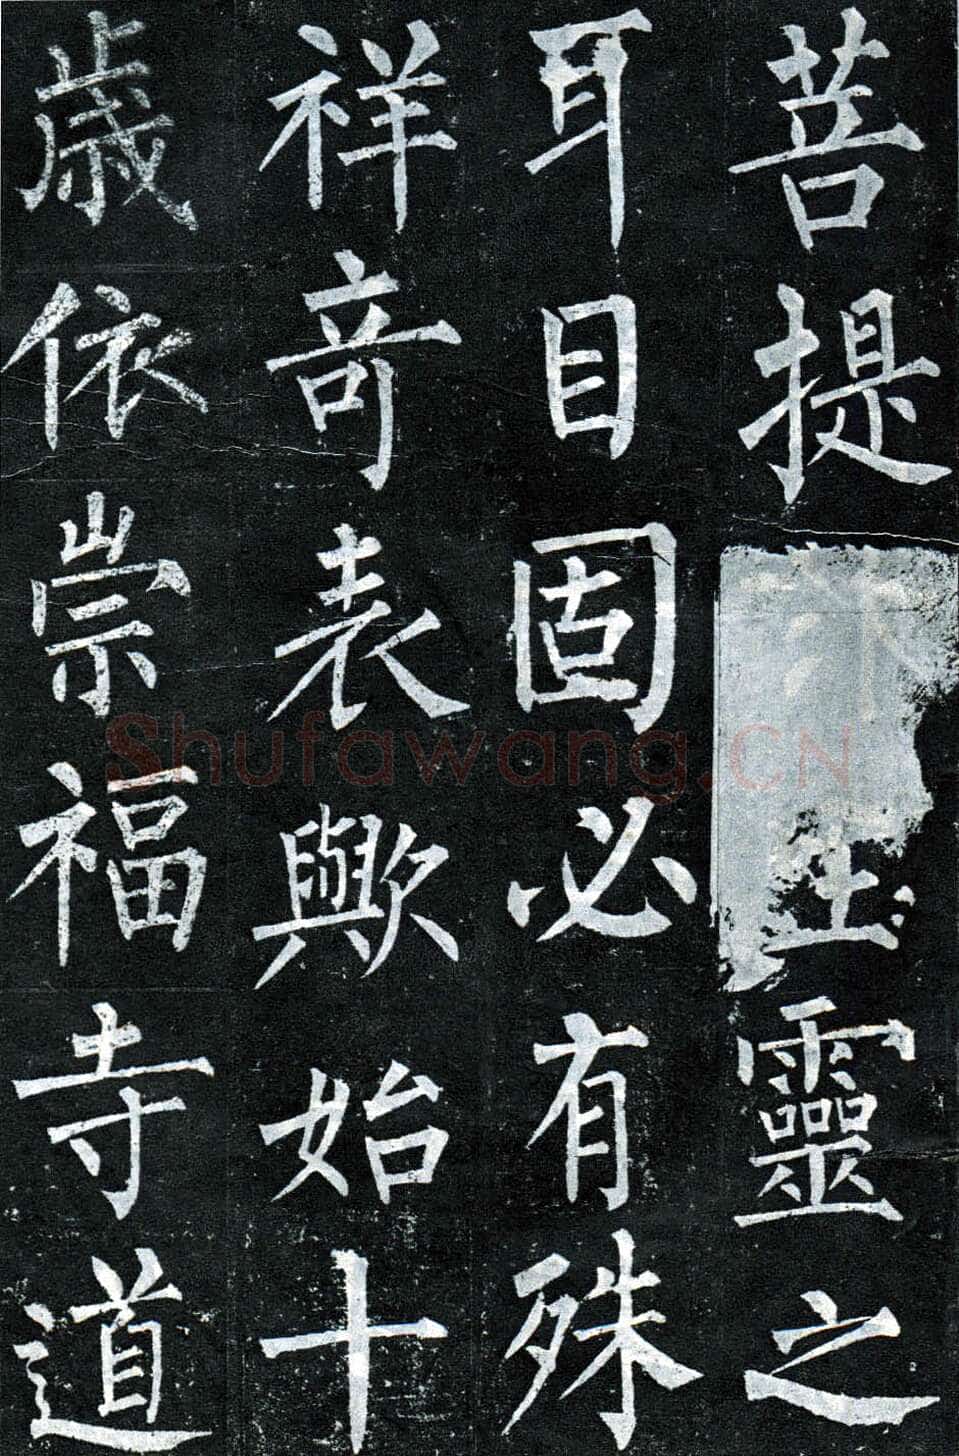 菩提生靈之
耳目固必有殊
祥竒表歟始十
歳依崇福寺道
Shufawang.CN